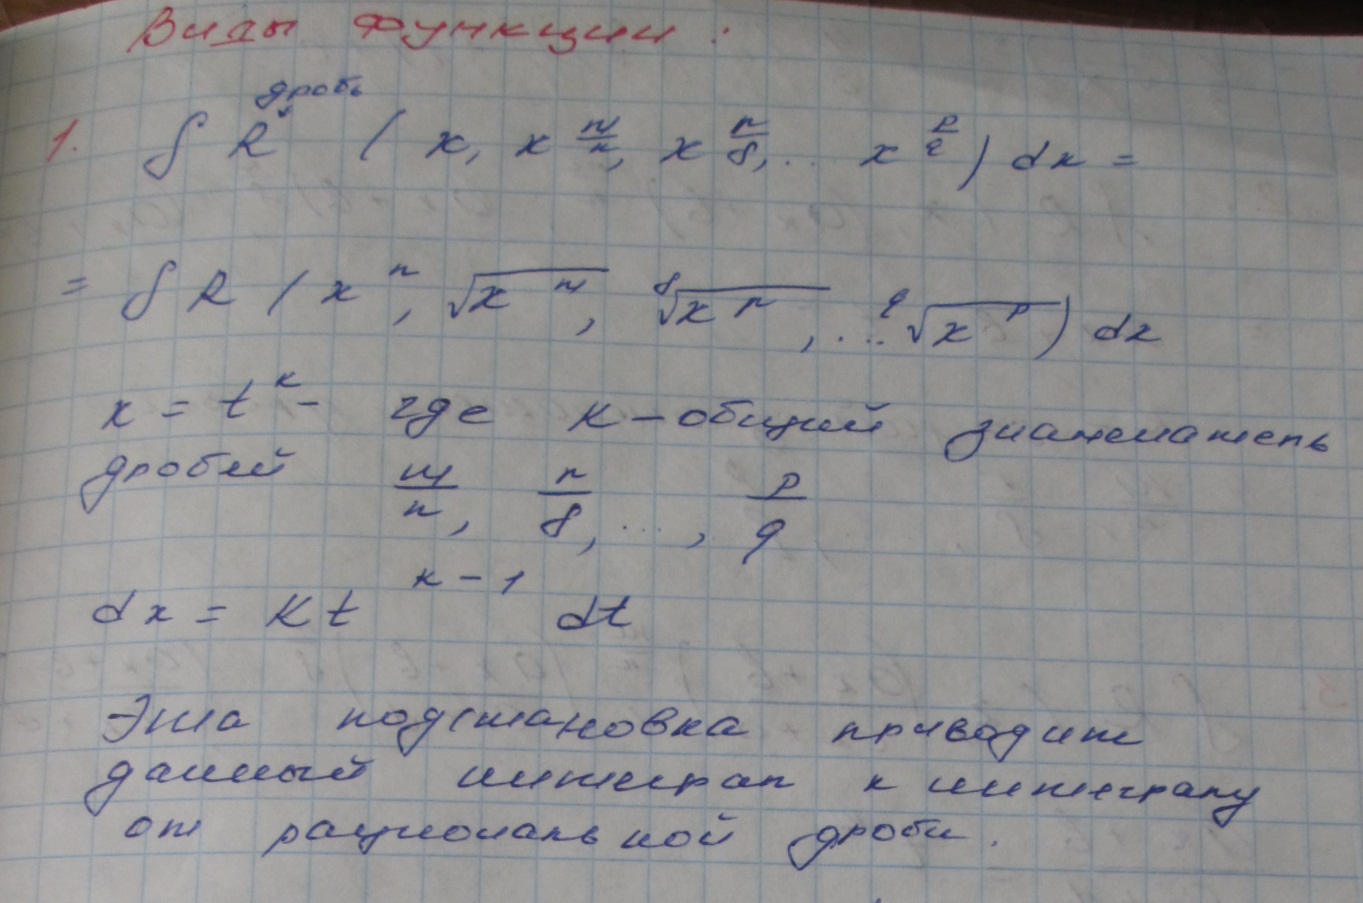 Виды функции:
дробь
1. ∫ R (x, x^{m/n}, x^{r/s}, .. x^{p/q}) dx =
= ∫ R (x^n, √(x^m), ^s√(x^r), ... ^q√(x^p)) dx
x = t^k – где k – общий знаменатель
дробей m/n, r/s, ..., p/q
dx = Kt^{k-1} dt
Эта подстановка приводит
данный интеграл к интегралу
от рациональной дроби.